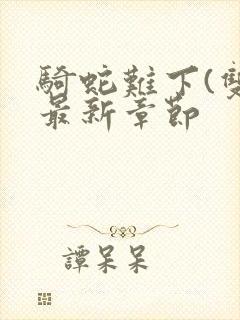 騎蛇難下(雙
最新章節
譚呆呆